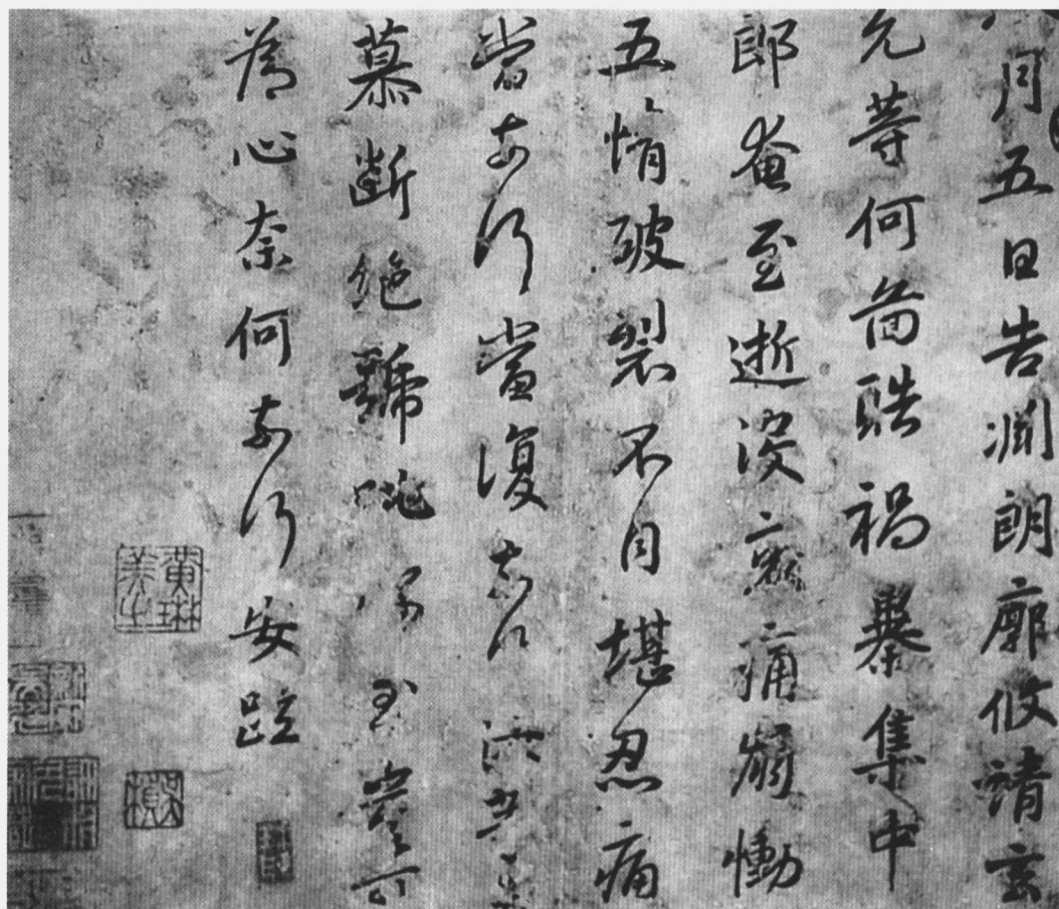 月五日告淵朗廓攸靖玄
允等何圖酷禍暴集中
郎奄至逝沒哀痛崩慟
五情破裂不自堪忍痛
當奈何當復奈何汝等哀
慕斷絕號咷深至豈可
為心奈何奈何安疏
黃琳美之
吳楨